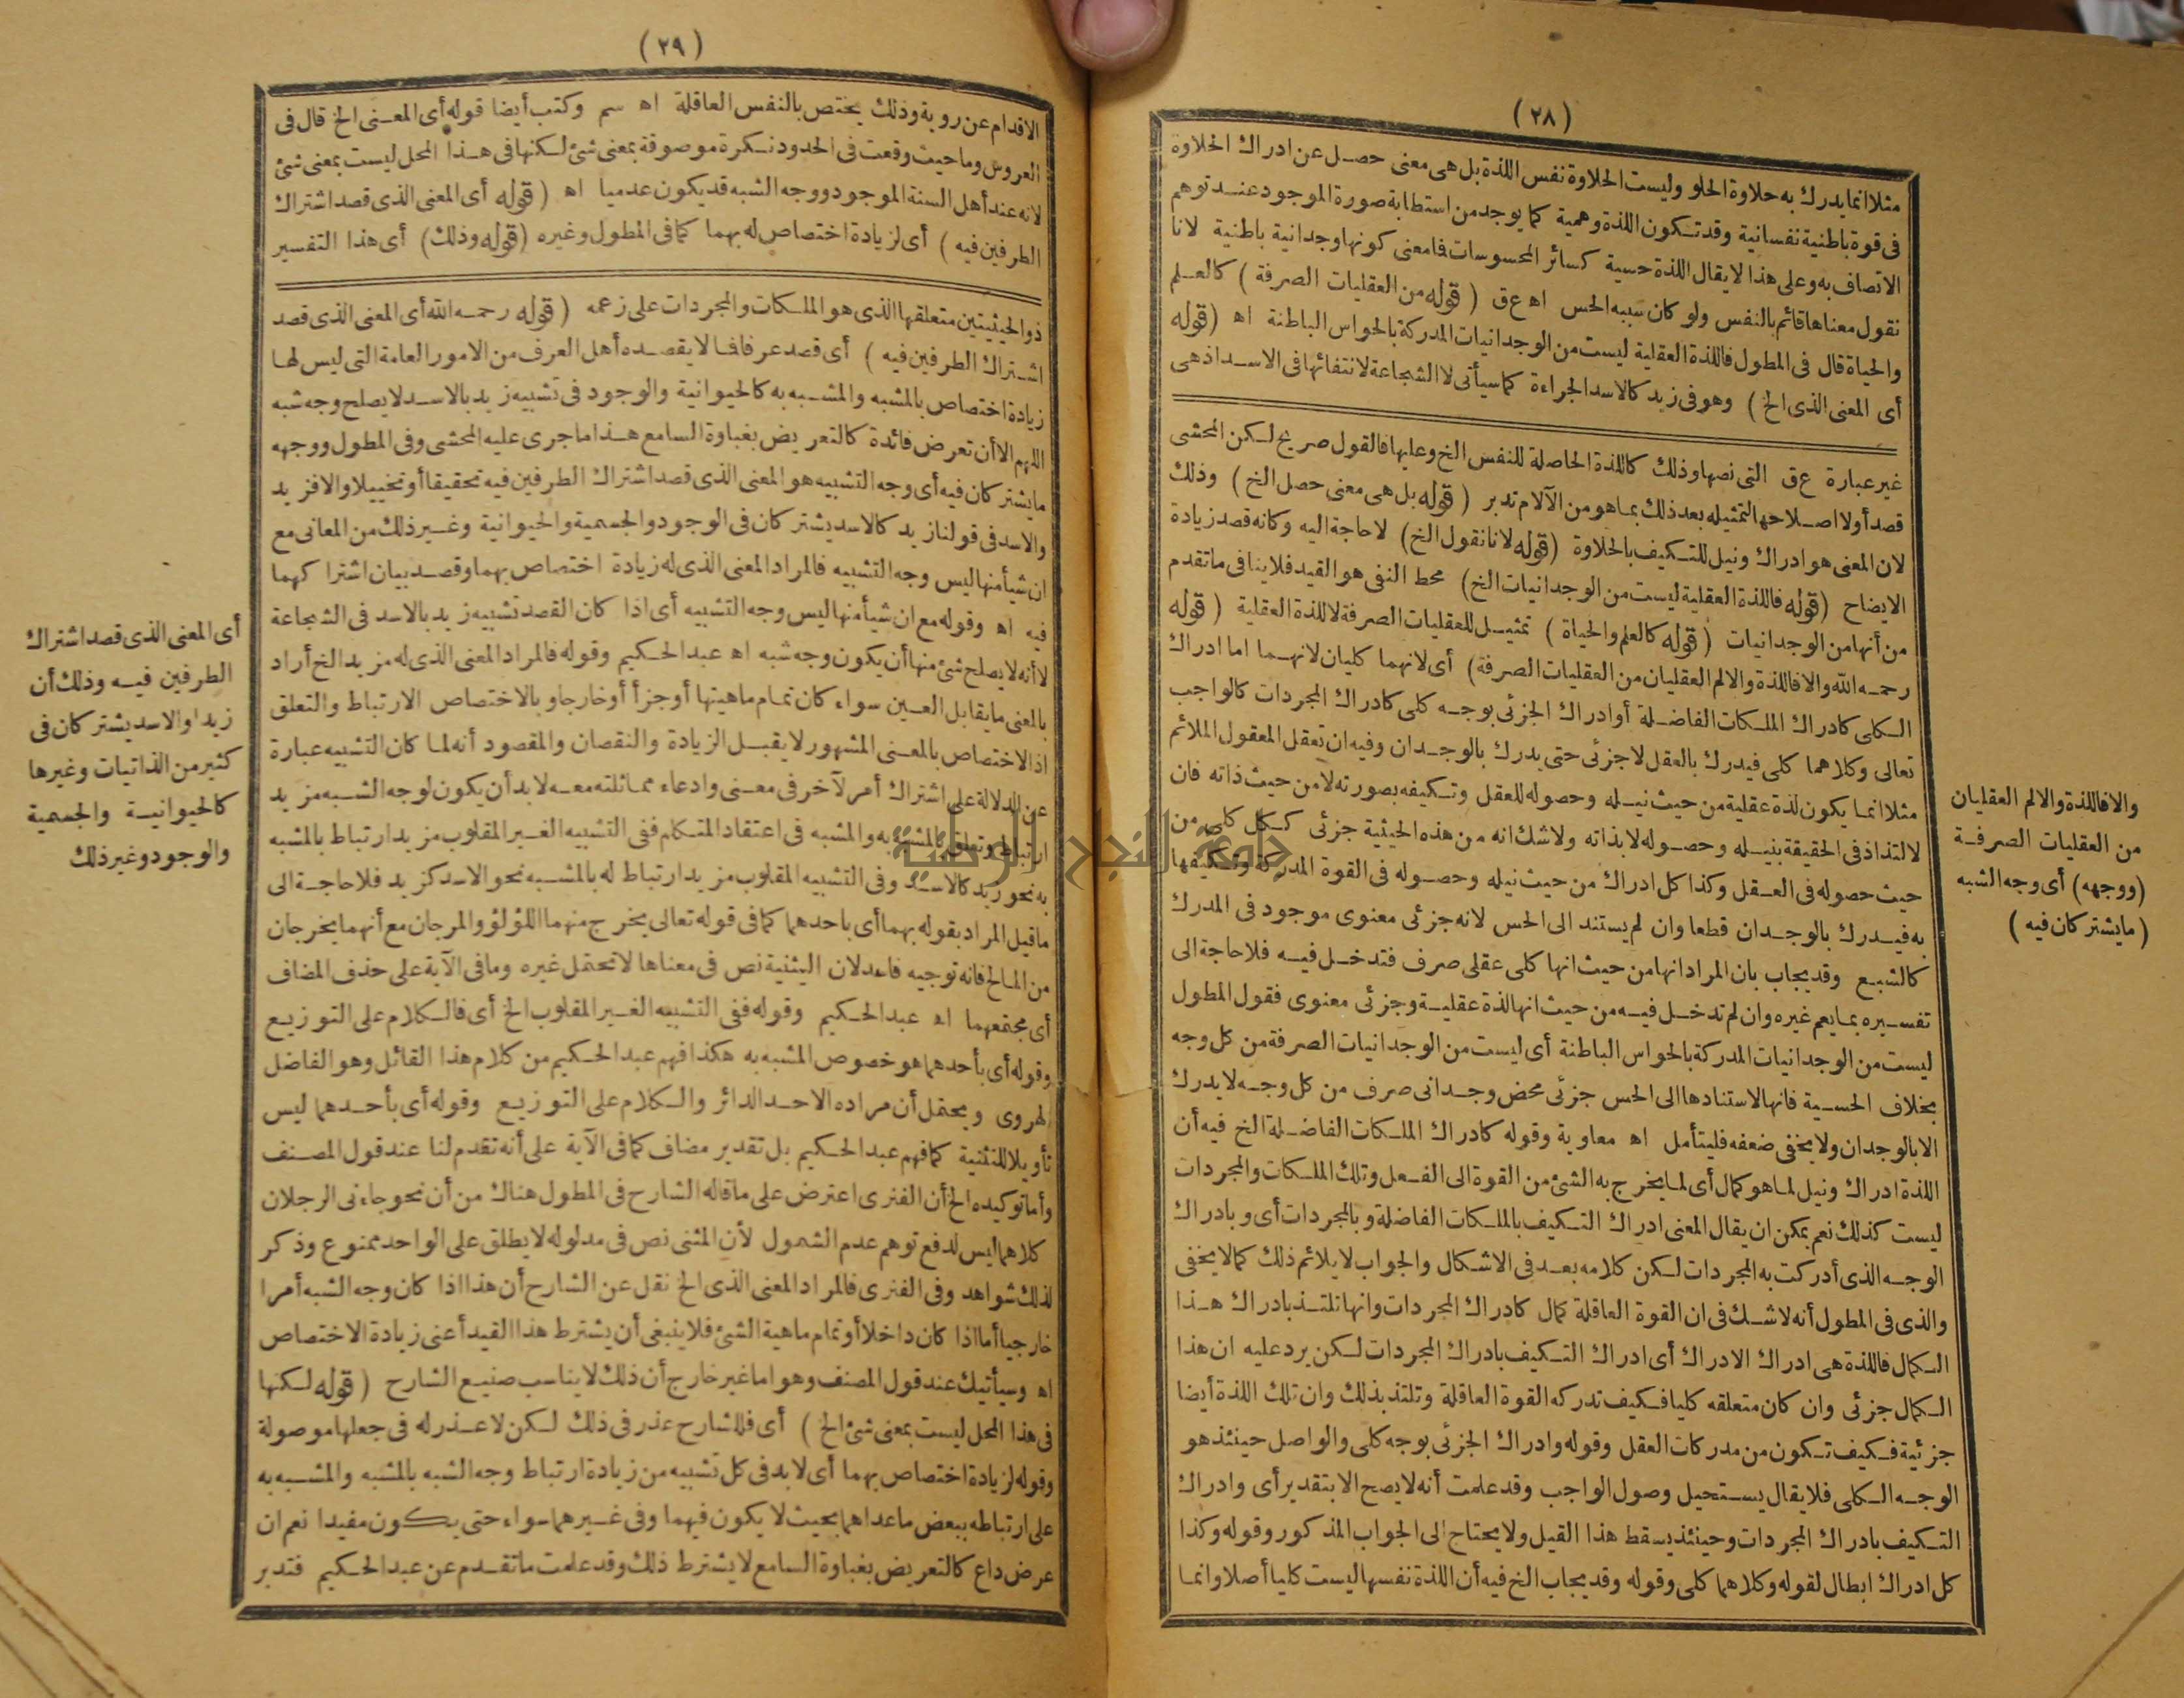 (٢٨)
مثلا انما يدرك به حلاوة الحلو وليست الحلاوة نفس اللذة بل هى معنى حصل عن ادراك الحلاوة
فى قوة باطنية نفسانية وقد تكون اللذة وهمية كما يوجد من استطابة صورة الموجود عند توهم
الاتصاف به وعلى هذا لا يقال اللذة حسية كسائر المحسوسات فما معنى كونها وجدانية باطنية لانا
نقول معناها قائم بالنفس ولو كان سببه الحس اه ع ق (قوله من العقليات الصرفة) كالعلم
والحياة قال فى المطول فاللذة العقلية ليست من الوجدانيات المدركة بالحواس الباطنة اه (قوله
أى المعنى الذى الخ) وهو فى زيد كالاسد الجراءة كما سيأتى لا الشجاعة لانتفائها فى الاسد اذ هى
غير عبارة ع ق التى نصها وذلك كاللذة الحاصلة للنفس الخ وعليها فالقول صريح لكن المحشى
قصد أولا اصلاحها لتمثيله بعد ذلك بما هو من الآلام تدبر (قوله بل هى معنى حصل الخ) وذلك
لان المعنى هو ادراك ونيل للتكيف بالحلاوة (قوله لانا نقول الخ) لا حاجة اليه وكانه قصد زيادة
الايضاح (قوله فاللذة العقلية ليست من الوجدانيات الخ) محط النفى هو القيد فلا ينافى ما تقدم
من أنها من الوجدانيات (قوله كالعلم والحياة) تمثيل للعقليات الصرفة لا للذة العقلية (قوله
رحمه الله والا فاللذة والالم العقليان من العقليات الصرفة) أى لانهما كليان لانهما اما ادراك
الكلى كادراك الملكات الفاضلة أو ادراك الجزئى بوجه كلى كادراك المجردات كالواجب
تعالى وكلاهما كلى فيدرك بالعقل لا جزئى حتى يدرك بالوجدان وفيه ان تعقل المعقول الملائم
مثلا انما يكون لذة عقلية من حيث نيله وحصوله للعقل وتكيفه بصورته لا من حيث ذاته فان
لا التذاذ فى الحقيقة بنيله وحصوله لا بذاته ولا شك انه من هذه الحيثية جزئى ككل كلى من
حيث حصوله فى العقل وكذا كل ادراك من حيث نيله وحصوله فى القوة المدركة وتكيفها
به فيدرك بالوجدان قطعا وان لم يستند الى الحس لانه جزئى معنوى موجود فى المدرك
كالشبع وقد يجاب بان المراد انها من حيث انها كلى عقلى صرف فتدخل فيه فلا حاجة الى
تفسيره بما يعم غيره وان لم تدخل فيه من حيث انها لذة عقلية وجزئى معنوى فقول المطول
ليست من الوجدانيات المدركة بالحواس الباطنة أى ليست من الوجدانيات الصرفة من كل وجه
بخلاف الحسية فانها لاستنادها الى الحس جزئى محض وجدانى صرف من كل وجه لا يدرك
الا بالوجدان ولا يخفى ضعفه فليتأمل اه معاوية وقوله كادراك الملكات الفاضلة الخ فيه أن
اللذة ادراك ونيل لما هو كمال أى لما يخرج به الشئ من القوة الى الفعل وتلك الملكات والمجردات
ليست كذلك نعم يمكن ان يقال المعنى ادراك التكيف بالملكات الفاضلة وبالمجردات أى وبادراك
الوجه الذى أدركت به المجردات لكن كلامه بعد فى الاشكال والجواب لا يلائم ذلك كما لا يخفى
والذى فى المطول أنه لا شك فى ان القوة العاقلة كمال كادراك المجردات وانها تلتذ بادراك هذا
الكمال فاللذة هى ادراك الادراك أى ادراك التكيف بادراك المجردات لكن يرد عليه ان هذا
الكمال جزئى وان كان متعلقه كليا فكيف تدركه القوة العاقلة وتلتذ بذلك وان تلك اللذة أيضا
جزئية فكيف تكون من مدركات العقل وقوله وادراك الجزئى بوجه كلى والواصل حينئذ هو
الوجه الكلى فلا يقال يستحيل وصول الواجب وقد علمت أنه لا يصح الا بتقدير أى وادراك
التكيف بادراك المجردات وحينئذ يسقط هذا القيل ولا يحتاج الى الجواب المذكور وقوله وكذا
كل ادراك ابطال لقوله وكلاهما كلى وقوله وقد يجاب الخ فيه أن اللذة نفسها ليست كليا أصلا وانما
والا فاللذة والالم العقليان
من العقليات الصرفة
(ووجهه) أى وجه الشبه
(ما يشتركان فيه)
(٢٩)
الاقدام عن روية وذلك يختص بالنفس العاقلة اه سم وكتب أيضا قوله أى المعنى الخ قال فى
العروس وما حيث وقعت فى الحدود نكرة موصوفة بمعنى شئ لكنها فى هذا المحل ليست بمعنى شئ
لانه عند أهل السنة الموجود ووجه الشبه قد يكون عدميا اه (قوله أى المعنى الذى قصد اشتراك
الطرفين فيه) أى لزيادة اختصاص له بهما كما فى المطول وغيره (قوله وذلك) أى هذا التفسير
ذو الحيثيتين متعلقها الذى هو الملكات والمجردات على زعمه (قوله رحمه الله أى المعنى الذى قصد
اشتراك الطرفين فيه) أى قصد عرفا فما لا يقصده أهل العرف من الامور العامة التى ليس لها
زيادة اختصاص بالمشبه والمشبه به كالحيوانية والوجود فى تشبيه زيد بالاسد لا يصلح وجه شبه
اللهم الا أن تعرض فائدة كالتعريض بغباوة السامع هذا ما جرى عليه المحشى وفى المطول ووجهه
ما يشتركان فيه أى وجه التشبيه هو المعنى الذى قصد اشتراك الطرفين فيه تحقيقا أو تخييلا والا فزيد
والاسد فى قولنا زيد كالاسد يشتركان فى الوجود والجسمية والحيوانية وغير ذلك من المعانى مع
ان شيأ منها ليس وجه التشبيه فالمراد المعنى الذى له زيادة اختصاص بهما وقصد بيان اشتراكهما
فيه اه وقوله مع ان شيأ منها ليس وجه التشبيه أى اذا كان القصد تشبيه زيد بالاسد فى الشجاعة
لا أنه لا يصلح شئ منها أن يكون وجه شبه اه عبد الحكيم وقوله فالمراد المعنى الذى له مزيد الخ أراد
بالمعنى ما يقابل العين سواء كان تمام ماهيتها أو جزأ أو خارجا وبالاختصاص الارتباط والتعلق
اذ الاختصاص بالمعنى المشهور لا يقبل الزيادة والنقصان والمقصود أنه لما كان التشبيه عبارة
عن الدلالة على اشتراك أمر لآخر فى معنى وادعاء مماثلته معه لا بد أن يكون لوجه الشبه مزيد
ارتباط وتعلق بالمشبه به والمشبه فى اعتقاد المتكلم ففى التشبيه الغير المقلوب مزيد ارتباط بالمشبه
به نحو زيد كالاسد وفى التشبيه المقلوب مزيد ارتباط له بالمشبه نحو الاسد كزيد فلا حاجة الى
ما قيل المراد بقوله بهما أى باحدهما كما فى قوله تعالى يخرج منهما اللؤلؤ والمرجان مع أنهما يخرجان
من المالح فانه توجيه فاسد لان التثنية نص فى معناها لا تحتمل غيره وما فى الآية على حذف المضاف
أى مجتمعهما اه عبد الحكيم وقوله ففى التشبيه الغير المقلوب الخ أى فالكلام على التوزيع
وقوله أى بأحدهما هو خصوص المشبه به هكذا فهم عبد الحكيم من كلام هذا القائل وهو الفاضل
الهروى ويحتمل أن مراده الاحد الدائر والكلام على التوزيع وقوله أى بأحدهما ليس
تأويلا للتثنية كما فهم عبد الحكيم بل تقدير مضاف كما فى الآية على أنه تقدم لنا عند قول المصنف
وأما توكيده الخ أن الفنرى اعترض على ما قاله الشارح فى المطول هناك من أن نحو جاءنى الرجلان
كلاهما ليس لدفع توهم عدم الشمول لأن المثنى نص فى مدلوله لا يطلق على الواحد ممنوع وذكر
لذلك شواهد وفى الفنرى فالمراد المعنى الذى الخ نقل عن الشارح أن هذا اذا كان وجه الشبه أمرا
خارجيا أما اذا كان داخلا أو تمام ماهية الشئ فلا ينبغى أن يشترط هذا القيد أعنى زيادة الاختصاص
اه وسيأتيك عند قول المصنف وهو اما غير خارج أن ذلك لا يناسب صنيع الشارح (قوله لكنها
فى هذا المحل ليست بمعنى شئ الخ) أى فللشارح عذر فى ذلك لكن لا عذر له فى جعلها موصولة
وقوله لزيادة اختصاص بهما أى لا بد فى كل تشبيه من زيادة ارتباط وجه الشبه بالمشبه والمشبه به
على ارتباطه ببعض ما عداهما بحيث لا يكون فيهما وفى غيرهما سواء حتى يكون مفيدا نعم ان
عرض داع كالتعريض بغباوة السامع لا يشترط ذلك وقد علمت ما تقدم عن عبد الحكيم فتدبر
أى المعنى الذى قصد اشتراك
الطرفين فيه وذلك أن
زيدا والاسد يشتركان فى
كثير من الذاتيات وغيرها
كالحيوانية والجسمية
والوجود وغير ذلك
جامعة النجاح الوطنية